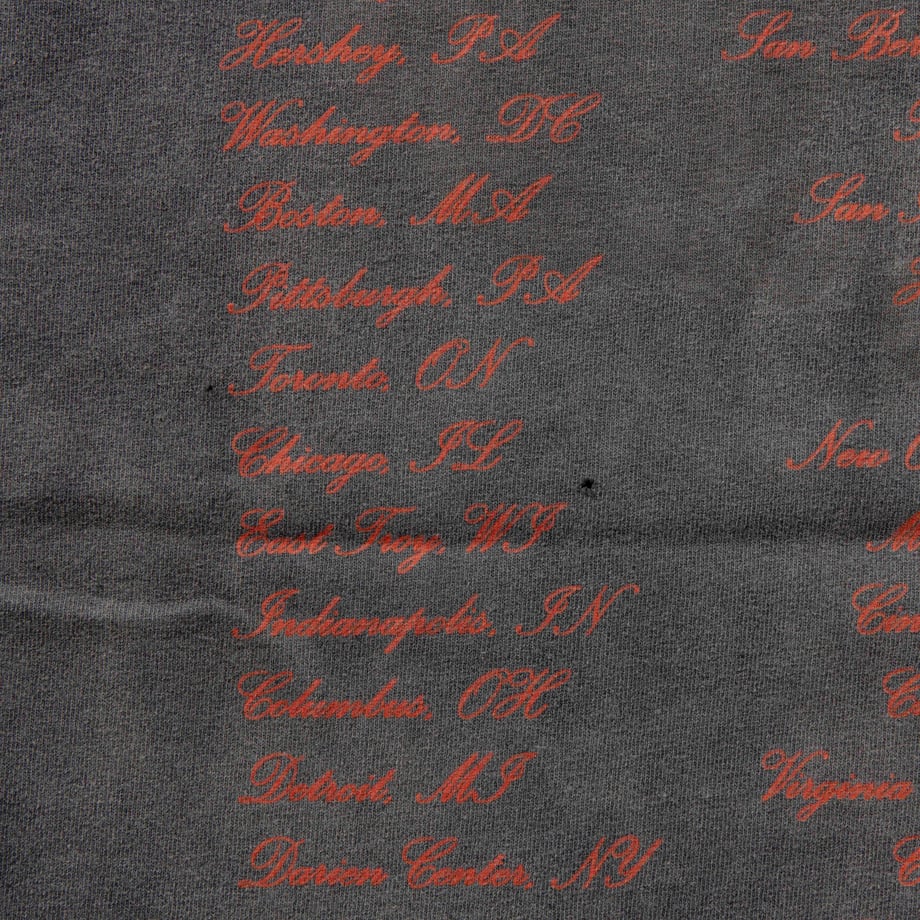 Hershey, PA
Washington, DC
Boston, MA
Pittsburgh, PA
Toronto, ON
Chicago, IL
East Troy, WI
Indianapolis, IN
Columbus, OH
Detroit, MI
Darien Center, NY
San
San
New
Virginia